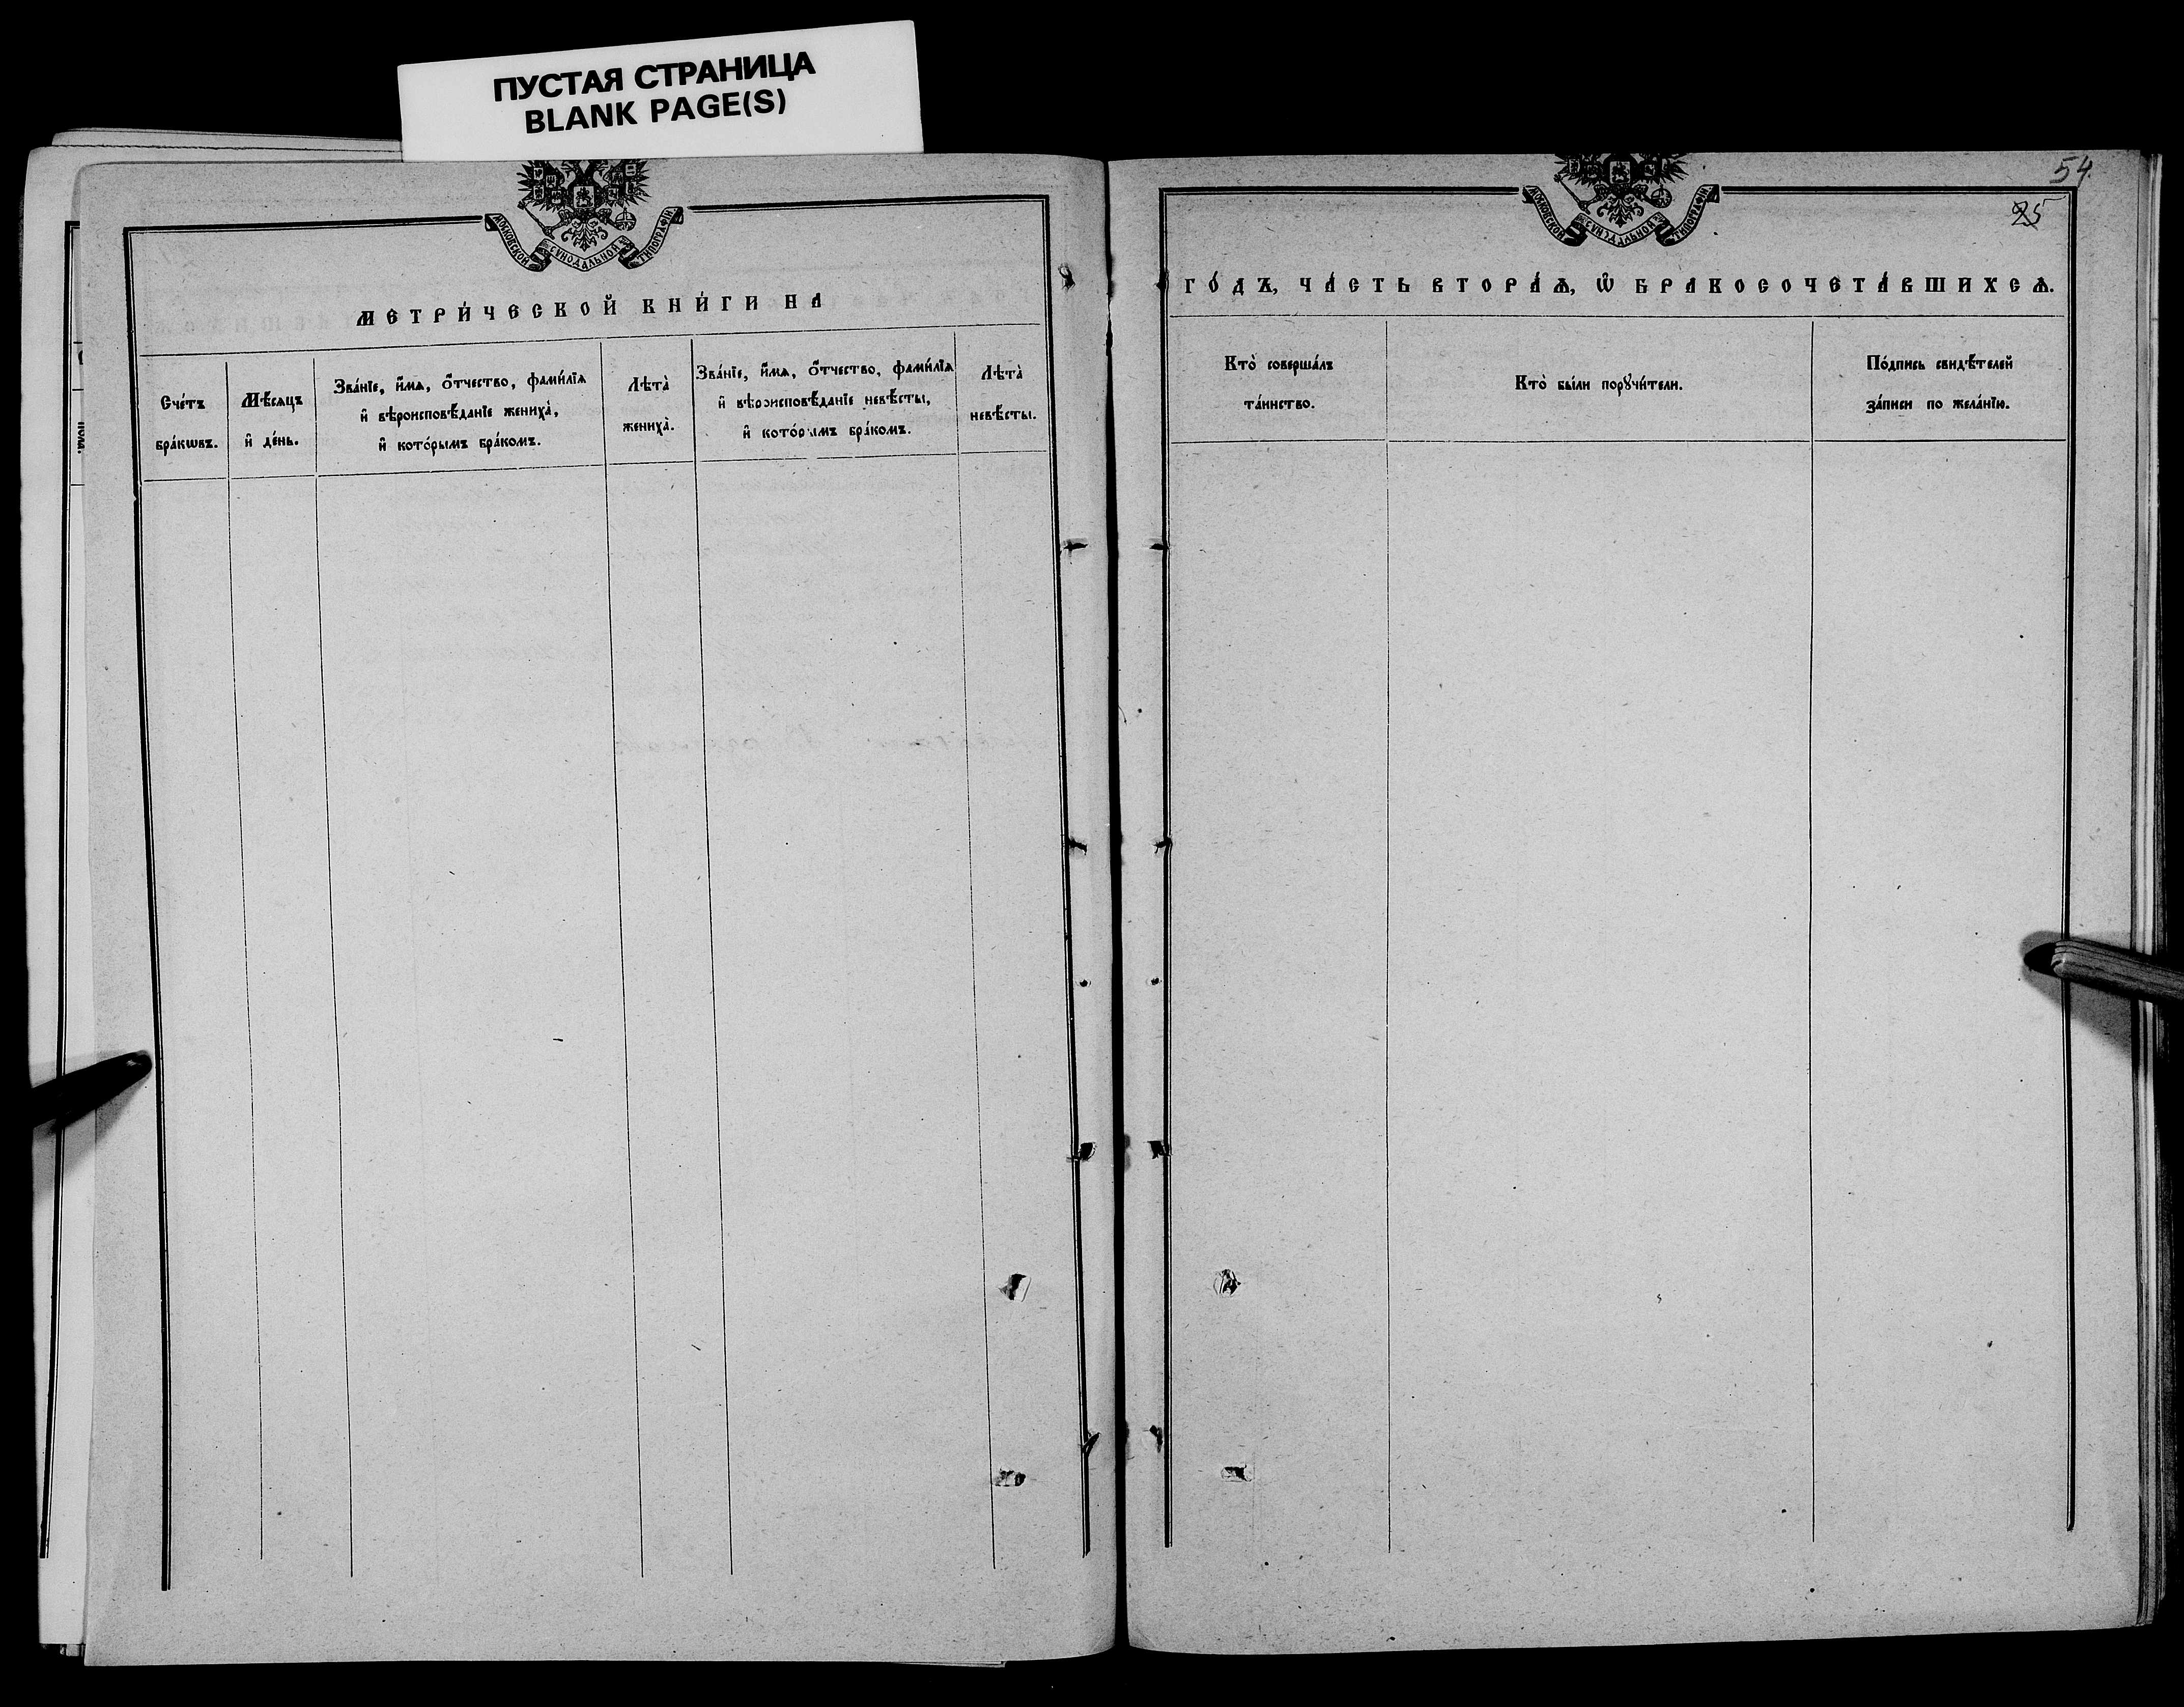 ПУСТАЯ СТРАНИЦА
BLANK PAGE(S)
МОСКОВСКОЙ СѴНОДАЛЬНОЙ ТИПОГРАФІИ.
МЕТРИ́ЧЕСКОЙ КНИ́ГИ НА
Сче́тъ
бра́кѡвъ.
Мѣ́сяцъ
и҆ де́нь.
Зва́нїе, и҆́мѧ, ѻ҆́тчество, фами́лїѧ
и҆ вѣроисповѣ́данїе жениха̀,
и҆ кото́рымъ бра́комъ.
Лѣта̀
жениха̀.
Зва́нїе, и҆́мѧ, ѻ҆́тчество, фами́лїѧ
и҆ вѣроисповѣ́данїе невѣ́сты,
и҆ кото́рымъ бра́комъ.
Лѣта̀
невѣ́сты.
54.
25
МОСКОВСКОЙ СѴНОДАЛЬНОЙ ТИПОГРАФІИ.
ГО́ДЪ, ЧА́СТЬ ВТОРА́Ѧ, Ѽ БРАКОСОЧЕТА́ВШИХСѦ.
Кто̀ соверша́лъ
та́инство.
Кто̀ бы́ли порꙋчи́тели.
По́дпись свидѣ́телей
за́писи по жела́нїю.